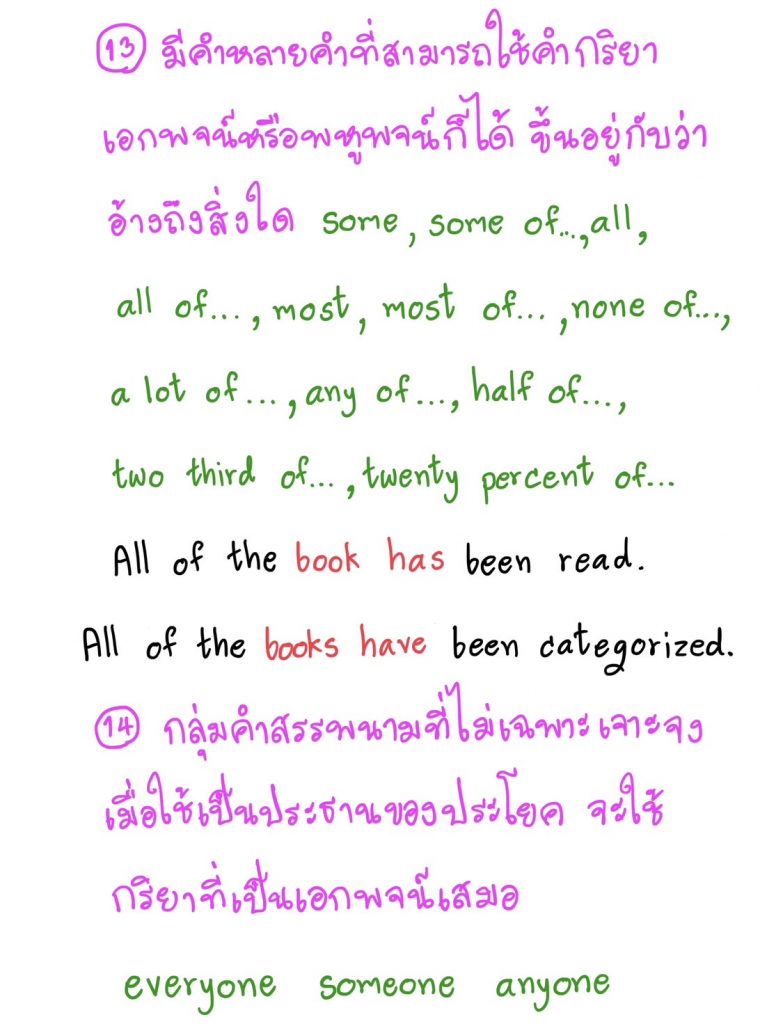 13 มีคำหลายคำที่สามารถใช้คำกริยา
เอกพจน์หรือพหูพจน์ก็ได้ ขึ้นอยู่กับว่า
อ้างถึงสิ่งใด some, some of..., all,
all of..., most, most of..., none of...,
a lot of..., any of..., half of...,
two third of..., twenty percent of...
All of the book has been read.
All of the books have been categorized.
14 กลุ่มคำสรรพนามที่ไม่เฉพาะเจาะจง
เมื่อใช้เป็นประธานของประโยค จะใช้
กริยาที่เป็นเอกพจน์เสมอ
everyone someone anyone